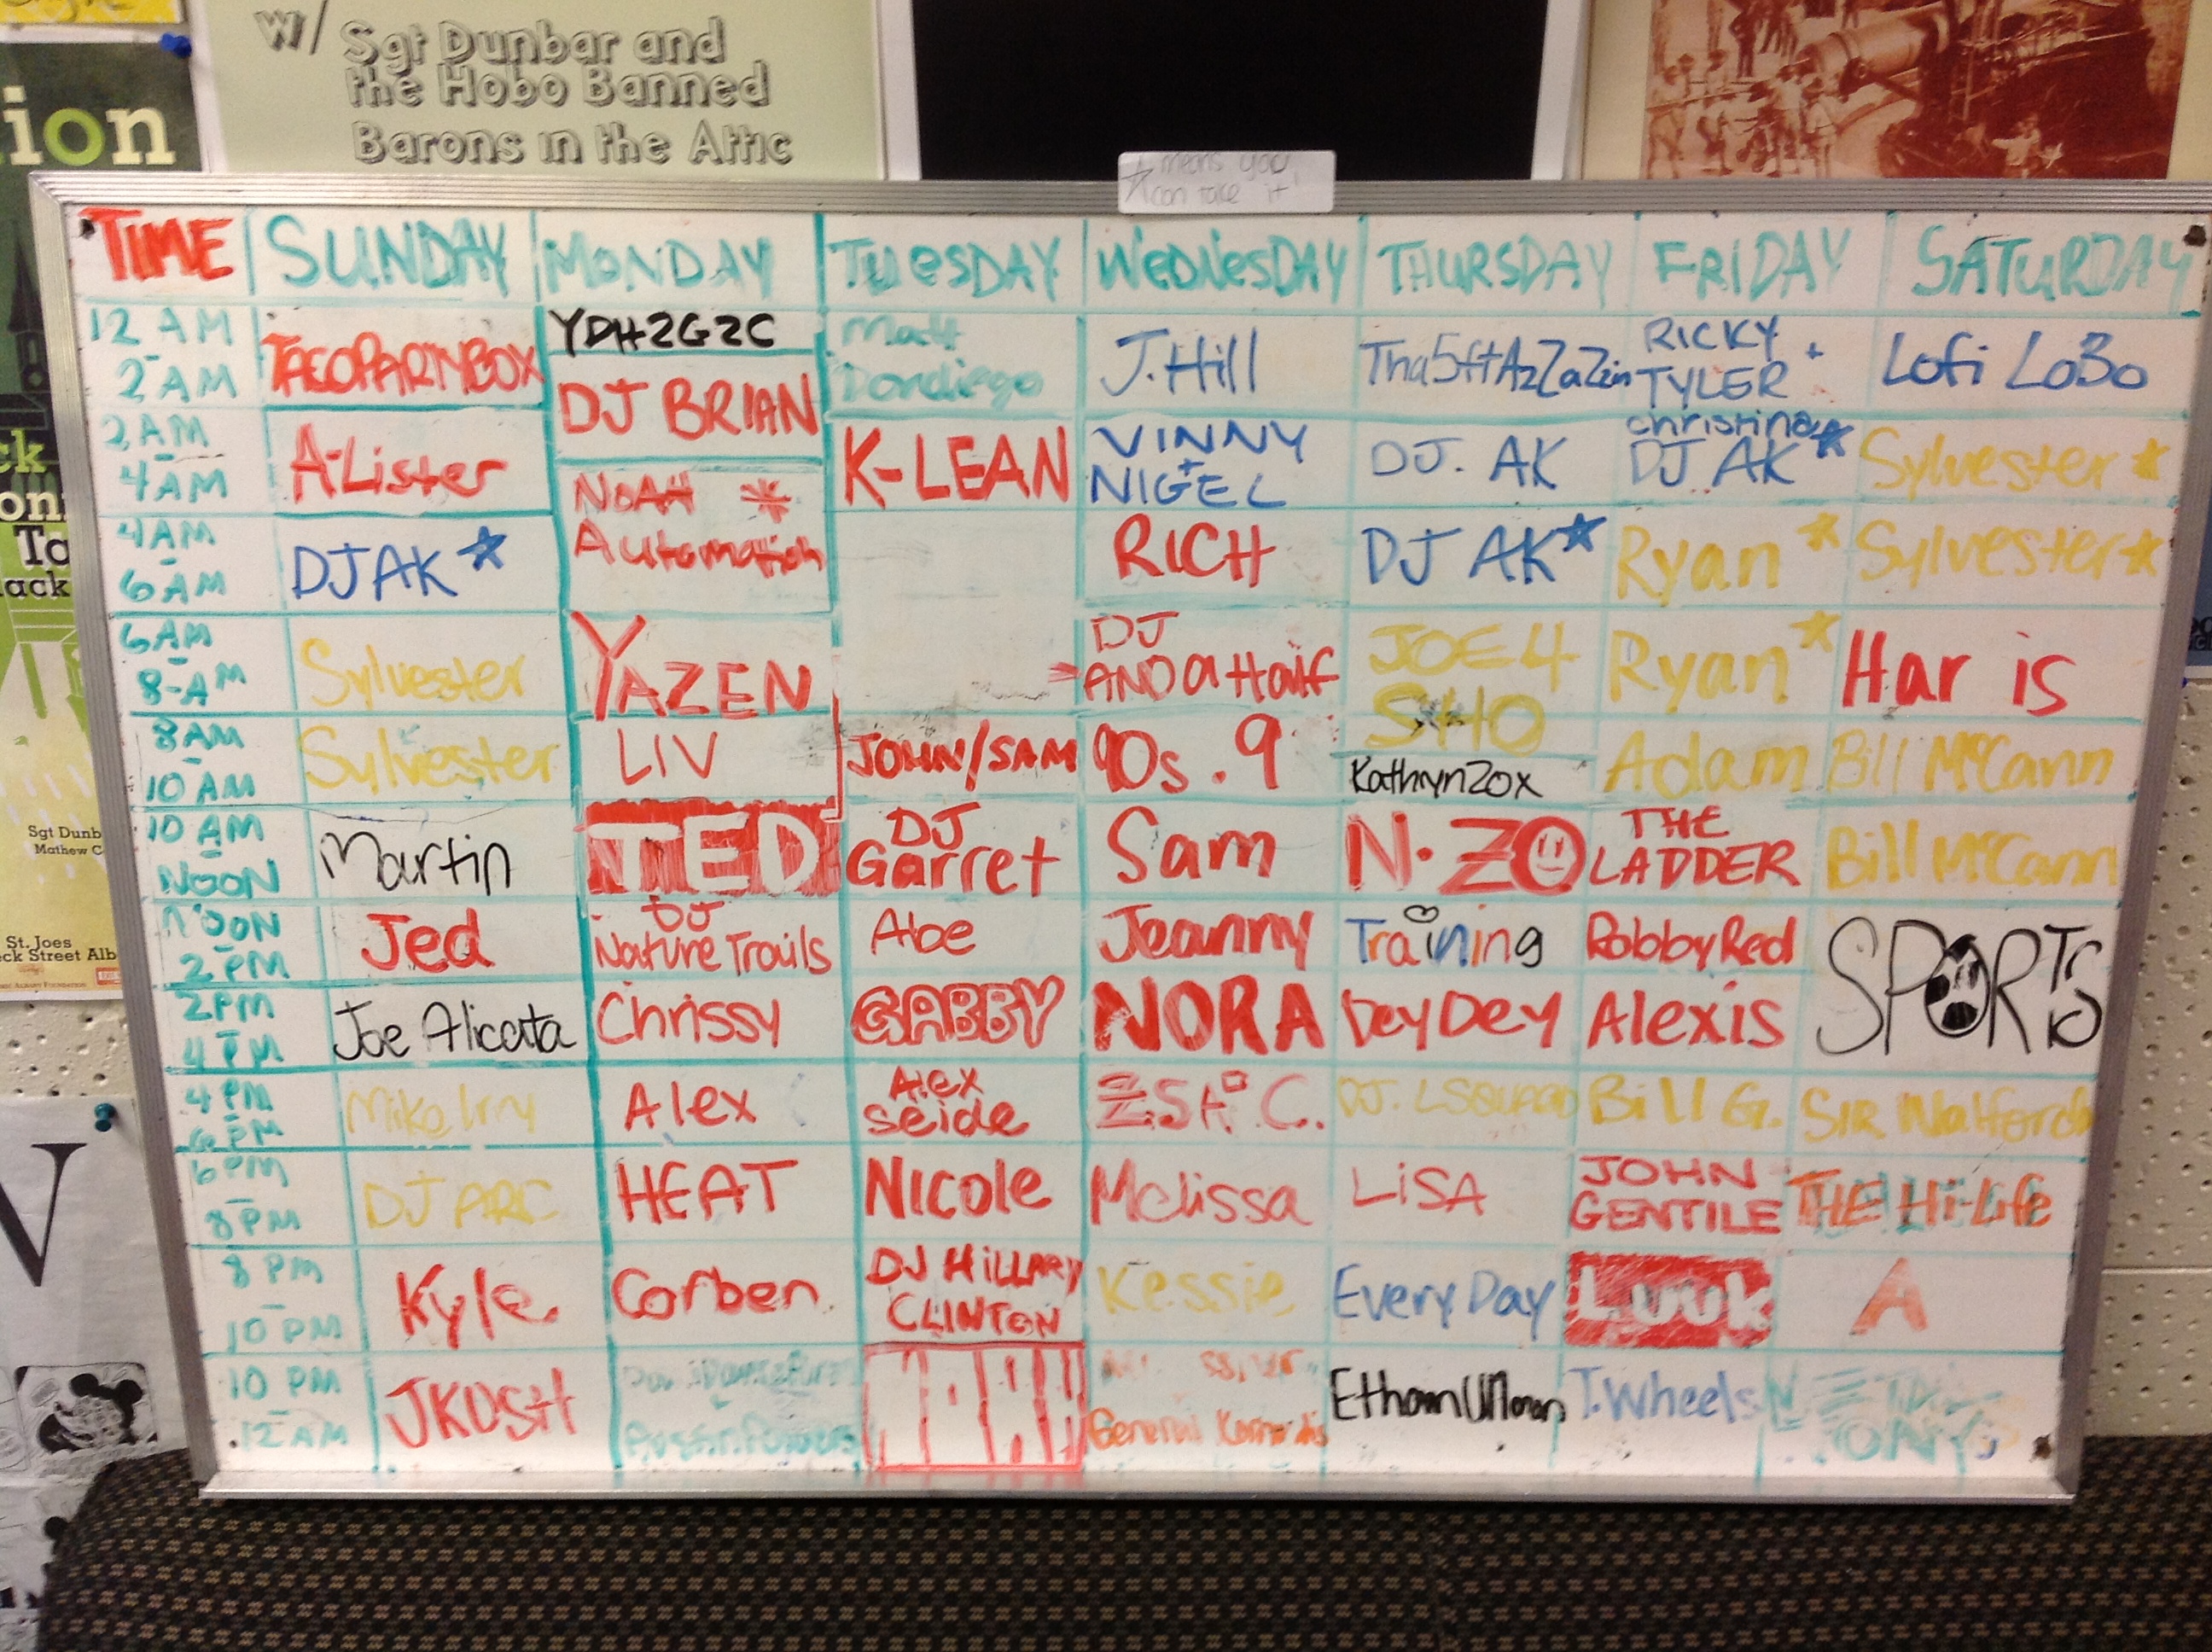 w/ Sgt Dunbar and
the Hobo Banned
Barons in the Attic
ion
means you
can take it!
TIME SUNDAY MONDAY TUESDAY WEDNESDAY THURSDAY FRIDAY SATURDAY
12 AM - 2 AM TACOPARTYBOX YDH2G2C DJ BRIAN Matt Dondiego J. Hill Tha5ftAzZaZin RICKY + TYLER christina Lofi LoBo
2 AM - 4 AM A-Lister NOAH Automation K-LEAN VINNY + NIGEL DJ. AK DJ AK Sylvester
4 AM - 6 AM DJ AK RICH DJ AK Ryan Sylvester
6 AM - 8-AM Sylvester YAZEN DJ AND a Half JOE 4 SHO Ryan Har is
8 AM - 10 AM Sylvester LIV JOHN/SAM 90s.9 Kathryn Zox Adam Bill McCann
10 AM - NOON Martin TED DJ Garret Sam N-ZO THE LADDER Bill McCann
NOON - 2 PM Jed DJ Nature Trails Abe Jeanny Training Robby Red SPORTS
2 PM - 4 PM Joe Alicata Chrissy GABBY NORA Dey Dey Alexis
4 PM - 6 PM Alex Alex Seide DJ. LSQUAD Bill G. SIR Walford
6 PM - 8 PM DJ ARC HEAT NICole Melissa LiSA JOHN GENTILE THE Hi-Life
8 PM - 10 PM Kyle Corben DJ HiLLARY CLINTON Kessie Every Day LOOK A
10 PM - 12 AM JKOSH General Ethan Ullman T. Wheels TONY
Sgt Dunb
Mathew C
St. Joes
ck Street Alb